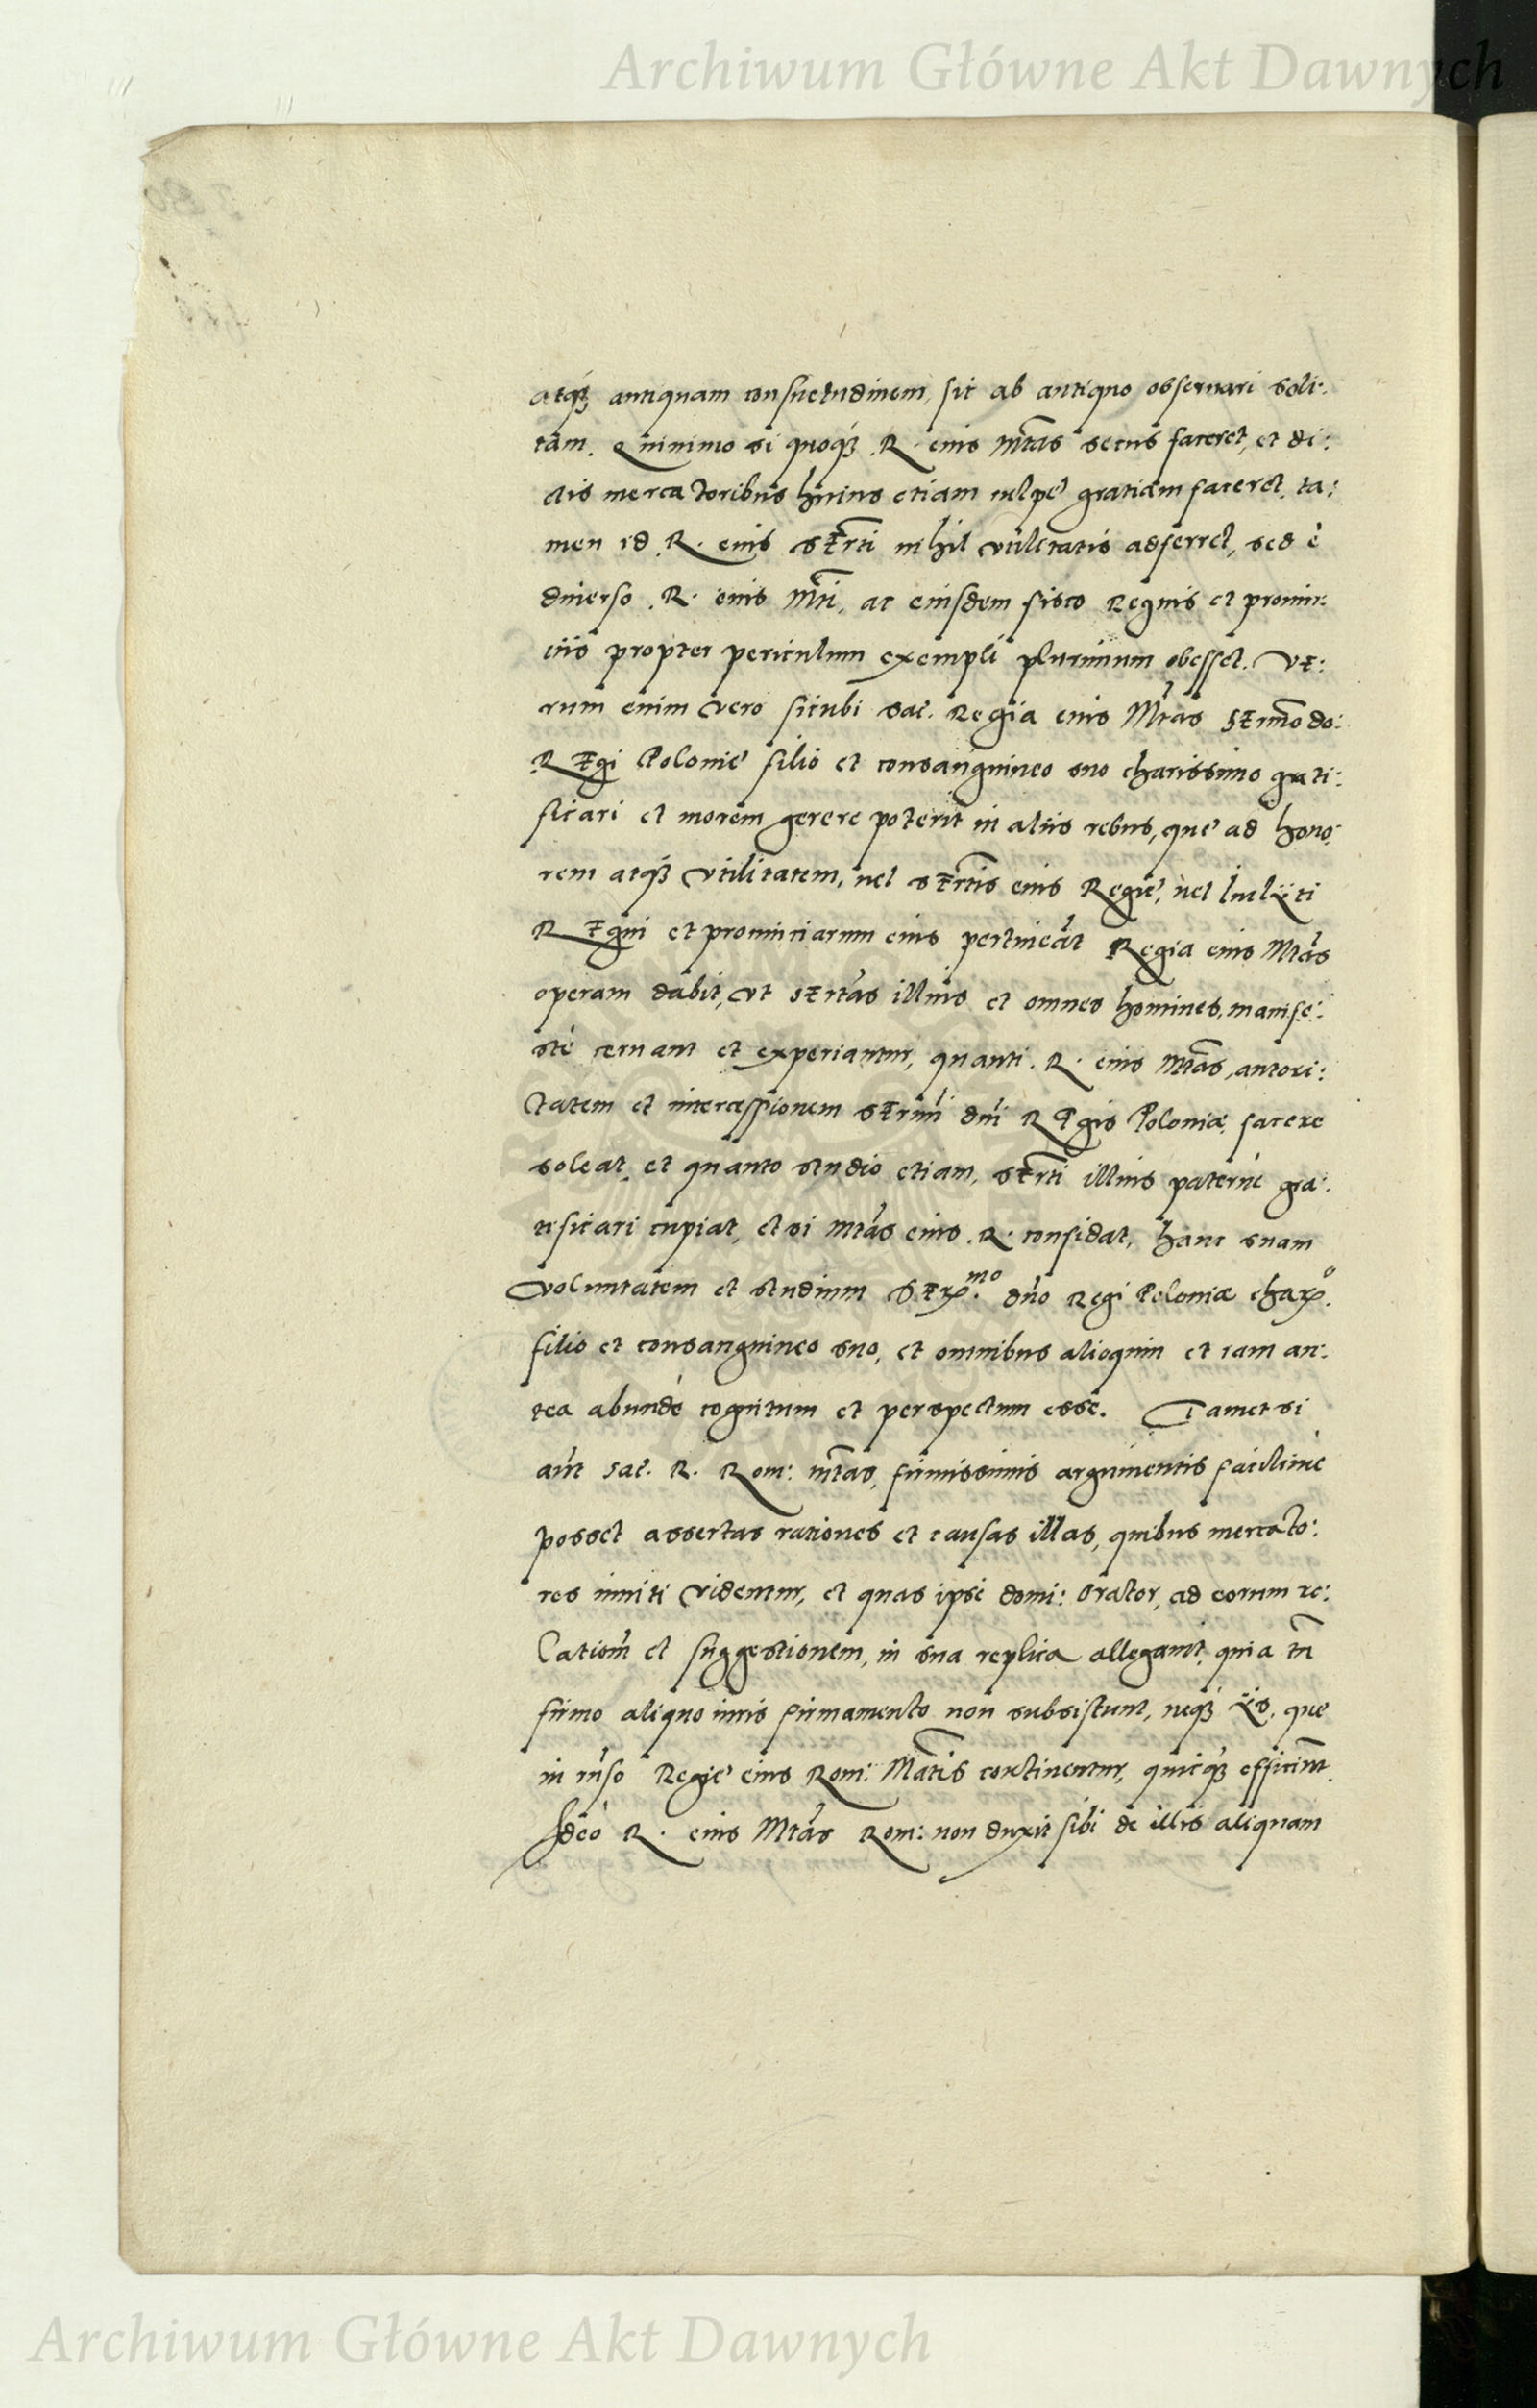 Archiwum Główne Akt Dawnych
atq3 antiquam consuetudinem, sit ab antiquo obseruari soli:
tam. Quinimo si quoq3 R. eius Mtas secus faceret, et di:
ctis mercatoribus huius etiam culpe gratiam faceret, ta:
men id R. eius SErti nihil vtilitatis adferret, sed è
diuerso R. eius Mti, ac eiusdem fisco Regnis et prouin:
ciis propter periculum exempli plurimum obesset. VE:
rum enim vero sicubi Sac. Regia eius Mtas SErmo do:
REgi Polonie filio et consanguineo suo charissimo grati:
ficari et morem gerere poterit in aliis rebus, que ad hono:
rem atq3 vtilitatem, uel SErtis eius Regie, uel Inclÿti
REgni et prouinciarum eius pertineat Regia eius Mtas
operam dabit, vt SErtas illius et omnes homines, manife:
stè cernant et experiantur, quanti R. eius Mtas, autori:
tatem et intercessionem SErmi dni REgis Poloniæ facere
soleat, et quanto studio etiam, SErti illius paternè gra:
tificari cupiat, etsi Mtas eius R. confidat, hanc suam
voluntatem et studium SErmo dno Regi Poloniæ charo
filio et consanguineo suo, et omnibus alioquin et iam an:
tea abundè cognitum et perspectum esse. Tametsi
aut Sac. R. Rom: Mtas, firmissimis argumentis facilime
posset assertas rationes et causas illas, quibus mercato:
res inniti videntur, et quas ipse domi: Orator, ad eorum re:
lationem et suggestionem, in sua replica allegauit, quia tn
firmo aliquo iuris firmamento non subsistunt, neq3 ÿs, que
in rnso Regie eius Rom: Matis continentur, quicq3 efficiunt.
Ideo R. eius Mtas Rom: non duxit sibi de illis aliquam
Archiwum Główne Akt Dawnych